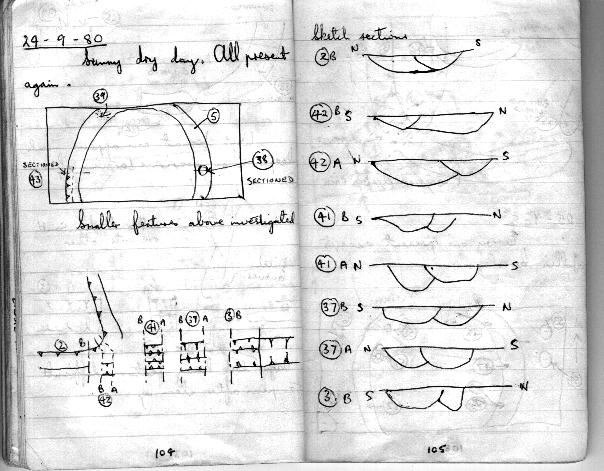 24-9-80
Sunny dry day. All present
again.
39
5
SECTIONED
43
38
SECTIONED
Smaller features above investigated
2 B
B 41 A
B 37 A
3 B
B A
42
104
Sketch sections
2 B N S
42 B S N
42 A N S
41 B S N
41 A N S
37 B S N
37 A N S
3 B S N
105